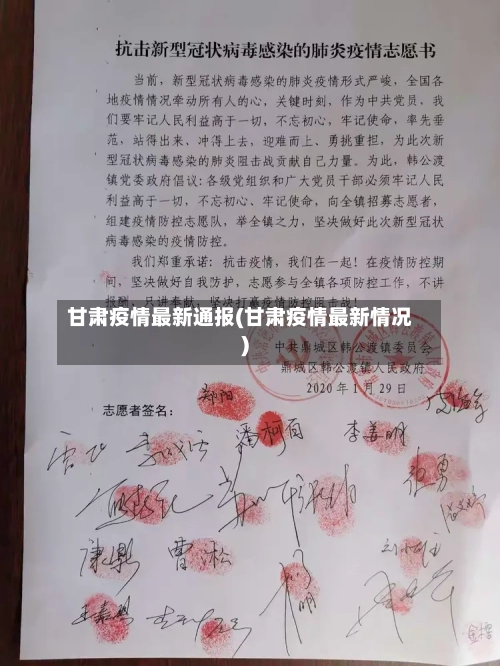 抗击新型冠状病毒感染的肺炎疫情志愿书
当前，新型冠状病毒感染的肺炎疫情形式严峻，全国各
地疫情情况牵动所有人的心，关键时刻，作为中共党员，我
们要牢记人民利益高于一切，不忘初心，牢记使命，率先垂
范，站得出来、冲得上去，迎难而上、勇挑重担，为此次新
型冠状病毒感染的肺炎阻击战贡献自己力量。为此，韩公渡
镇党委政府倡议:各级党组织和广大党员干部必须牢记人民
利益高于一切，不忘初心、牢记使命，向全镇招募志愿者，
组建疫情防控志愿队，举全镇之力，坚决做好此次新型冠状
病毒感染的疫情防控。
我们郑重承诺：抗击疫情，我们在一起！在疫情防控期
间，坚决做好自我防护，志愿参与全镇各项防控工作，不讲
报酬，只讲奉献，坚决打赢疫情防控阻击战！
甘肃疫情最新通报(甘肃疫情最新情况
)
中共鼎城区韩公渡镇委员会
鼎城区韩公渡镇人民政府
2020年1月29日
志愿者签名：
郑阳
潘柯百
李姜明
张勇
康鼎
曹松